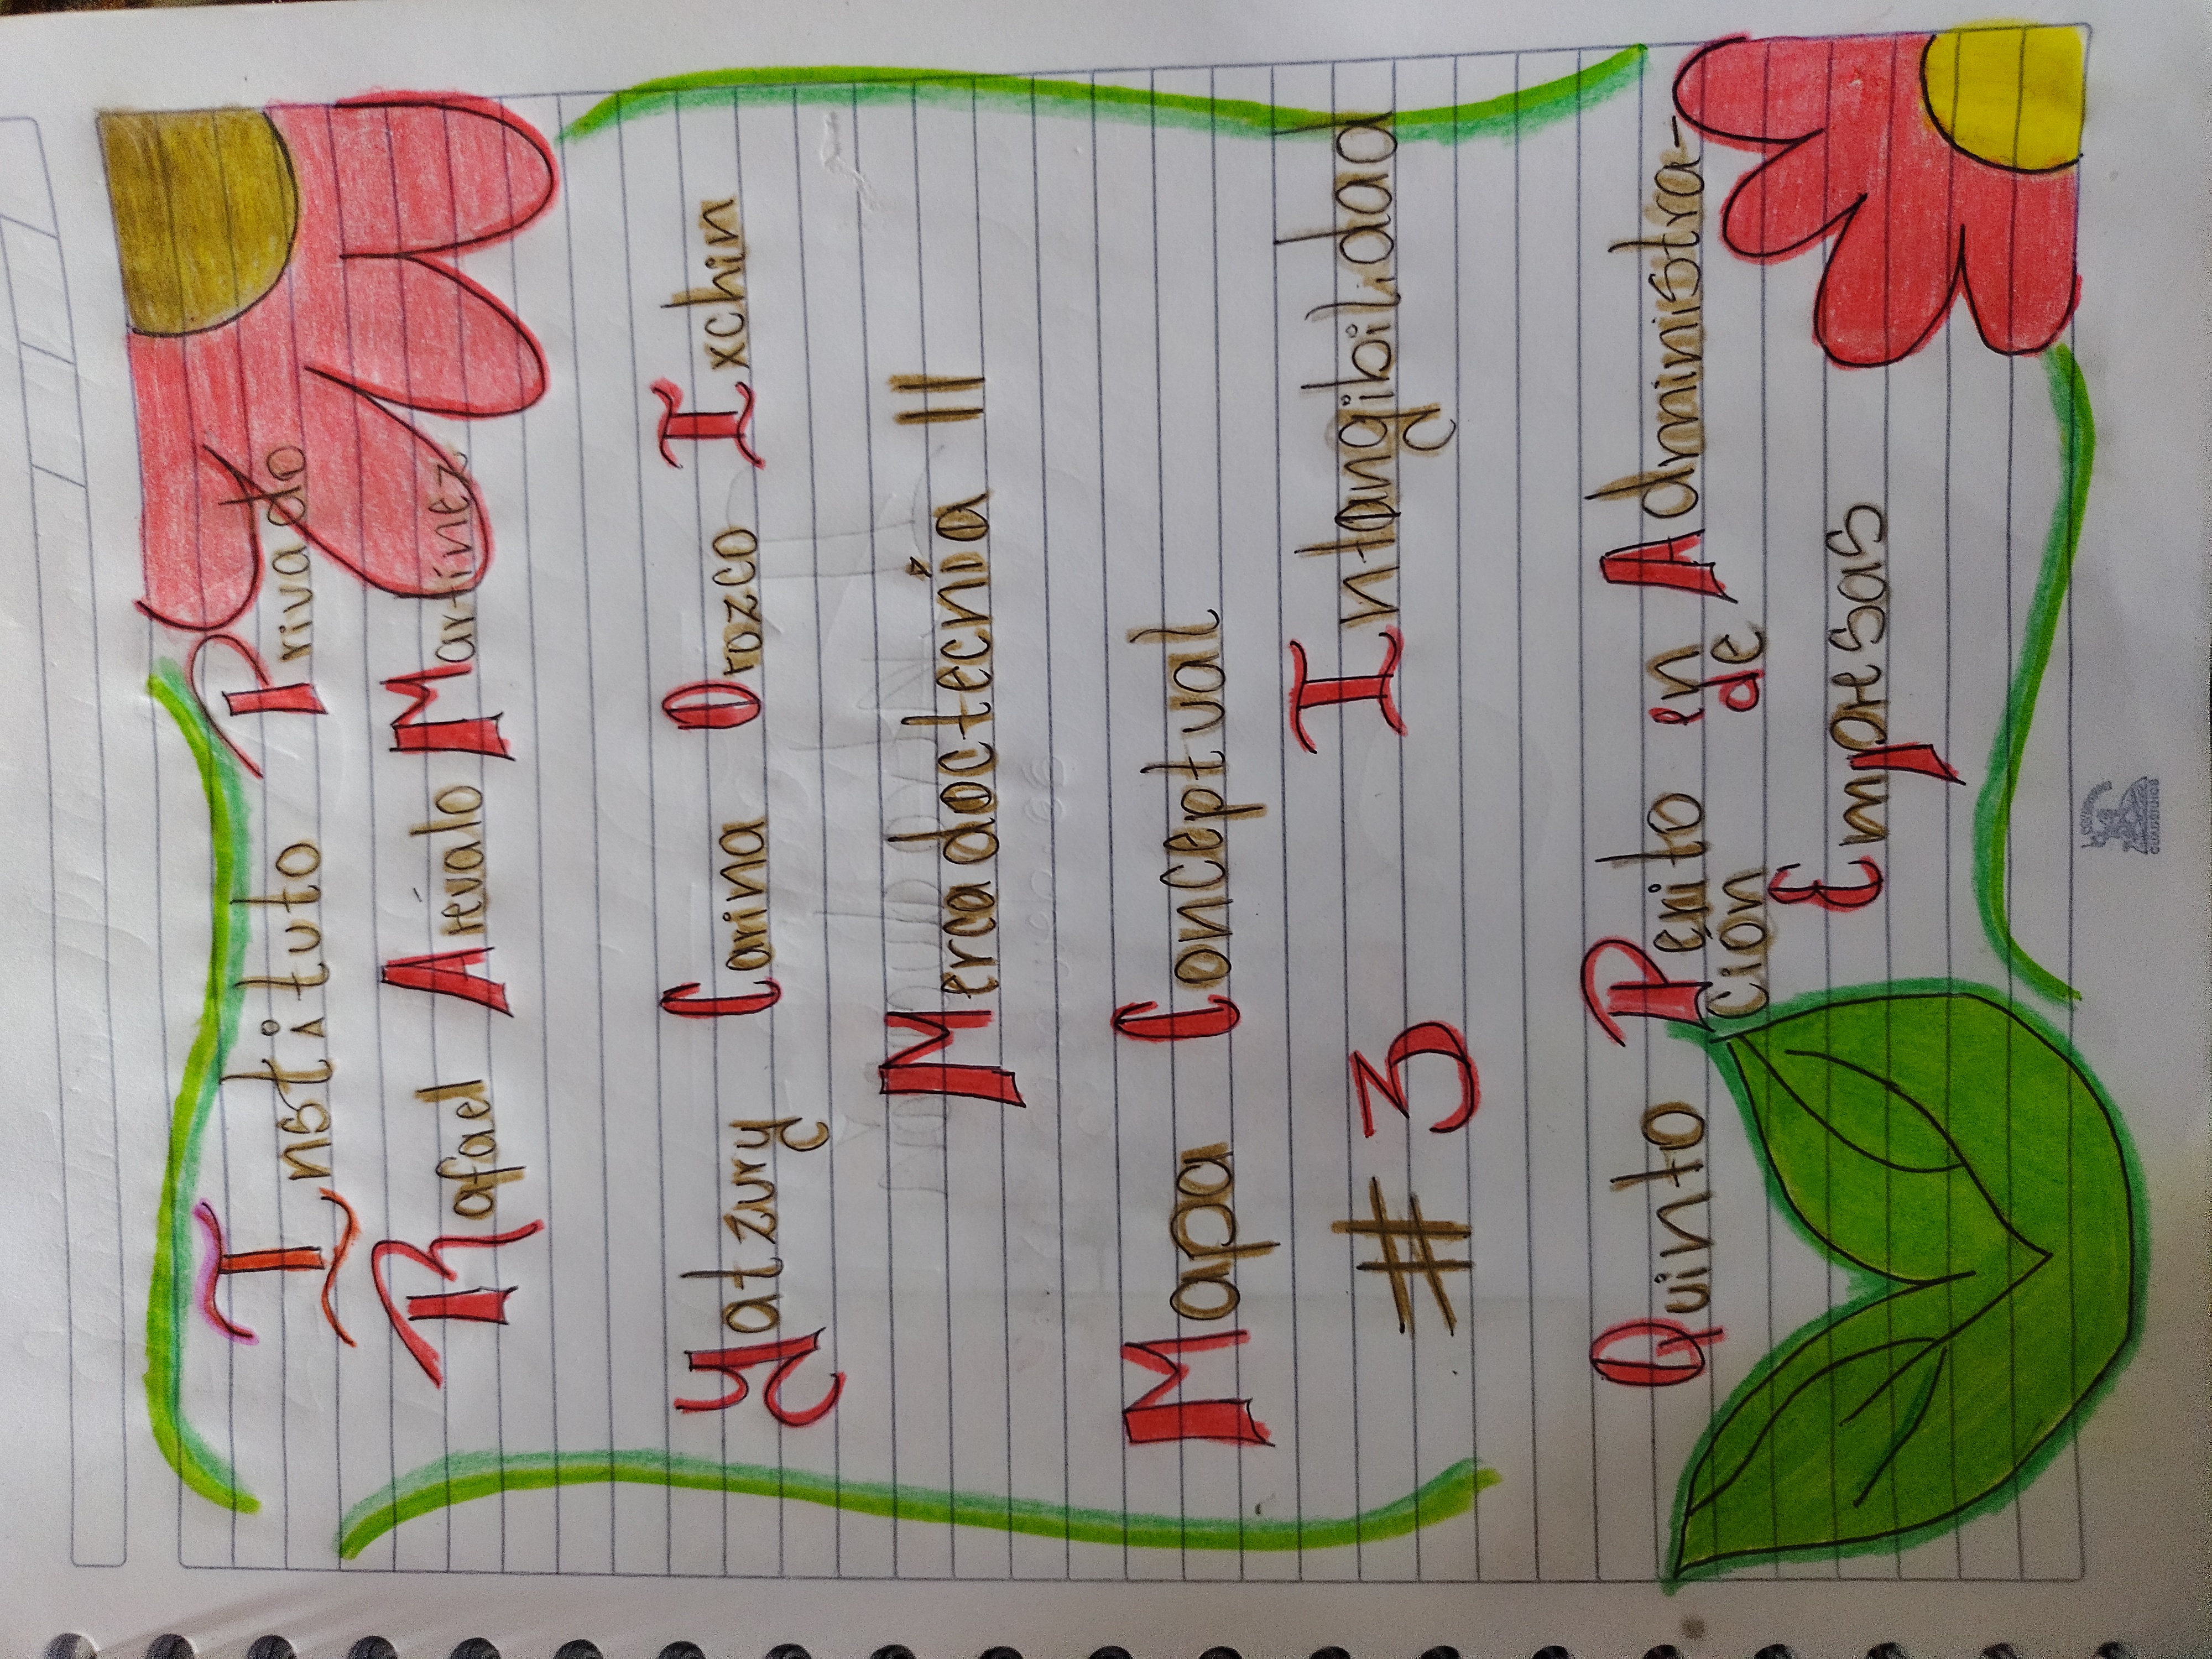 Instituto Privado
Rafael Arévalo Martínez
Yatzury Carina Orozco Ixchin
Mercadoctecnía II
Mapa Conceptual
# 3 Intangibilidad
Quinto Perito en Administra-
ción de
Empresas